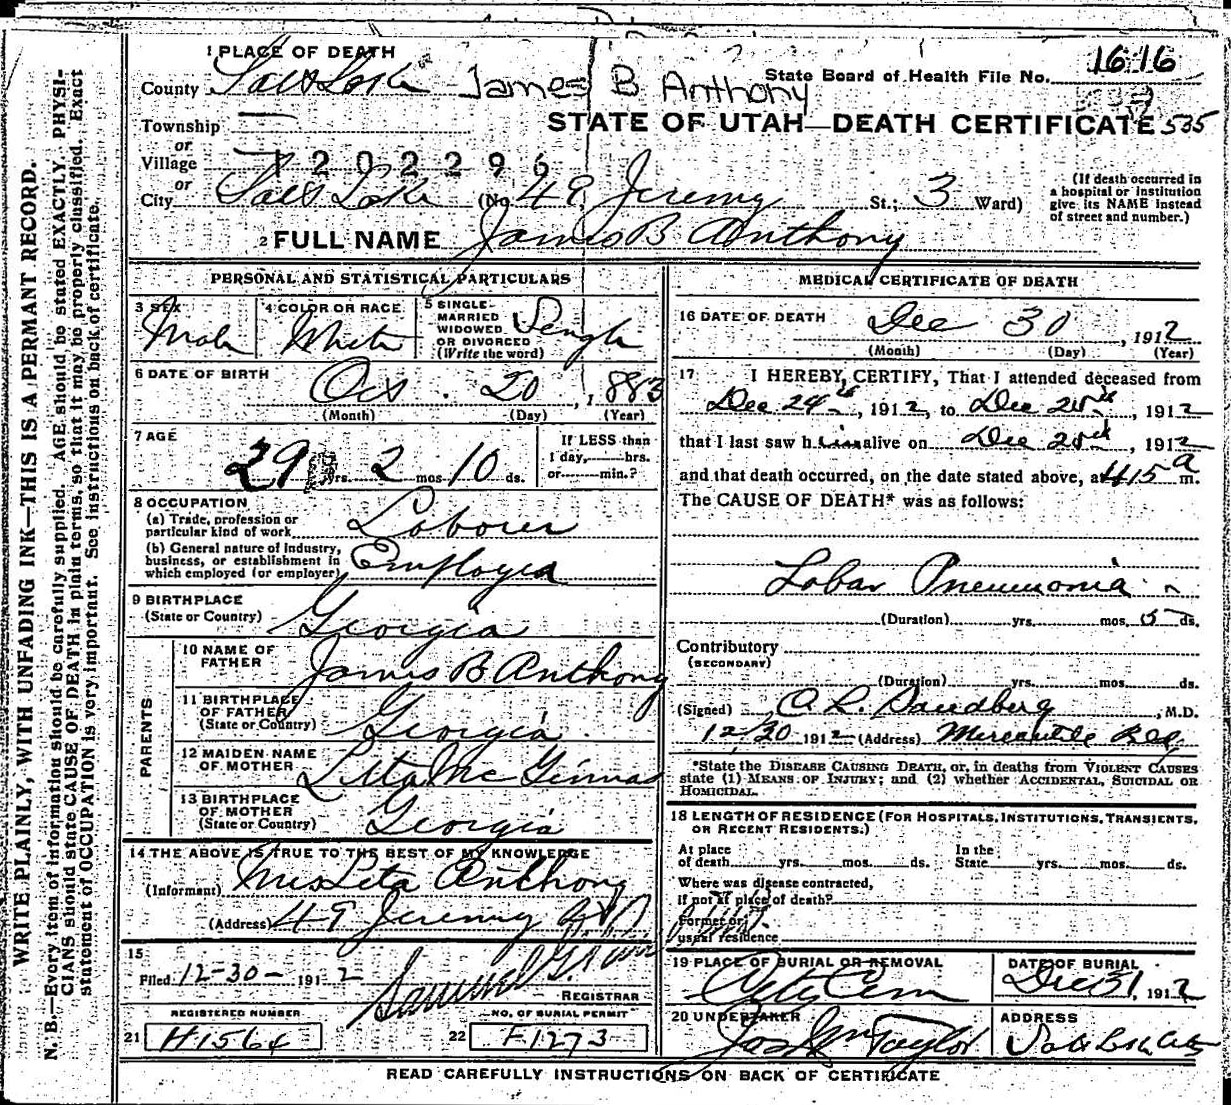 1 PLACE OF DEATH
County Salt Lake James B Anthony State Board of Health File No. 1616
Township
or
STATE OF UTAH—DEATH CERTIFICATE 535
Village 1 2 0 2 2 9 6
or
City Salt Lake (No. 49 Jeremy St.; 3 Ward)
(If death occurred in a hospital or institution give its NAME instead of street and number.)
2 FULL NAME James B Anthony
PERSONAL AND STATISTICAL PARTICULARS
3 SEX Male
4 COLOR OR RACE White
5 SINGLE
MARRIED
WIDOWED
OR DIVORCED
(Write the word) Single
6 DATE OF BIRTH Oct. 20, 1883
(Month) (Day) (Year)
7 AGE 29 yrs. 2 mos 10 ds.
If LESS than
1 day, hrs.
or min.?
8 OCCUPATION
(a) Trade, profession or
particular kind of work Laborer
(b) General nature of Industry,
business, or establishment in
which employed (or employer)
9 BIRTHPLACE
(State or Country) Georgia
PARENTS
10 NAME OF
FATHER James B Anthony
11 BIRTHPLACE
OF FATHER
(State or Country) Georgia
12 MAIDEN NAME
OF MOTHER
13 BIRTHPLACE
OF MOTHER
(State or Country) Georgia
14 THE ABOVE IS TRUE TO THE BEST OF MY KNOWLEDGE
(Informant) Mrs Leta Anthony
(Address) 49 Jeremy
15
Filed 12-30- 1912 Samuel G
REGISTRAR
REGISTERED NUMBER
21 H1564
NO. OF BURIAL PERMIT
22 F1273
MEDICAL CERTIFICATE OF DEATH
16 DATE OF DEATH Dec 30, 1912
(Month) (Day) (Year)
17 I HEREBY CERTIFY, That I attended deceased from
Dec 24th, 1912, to Dec, 1912
that I last saw him alive on Dec, 1912
and that death occurred, on the date stated above, at 415 a m.
The CAUSE OF DEATH* was as follows:
Lobar Pneumonia
(Duration) yrs. mos. 5 ds.
Contributory
(SECONDARY)
(Duration) yrs. mos. ds.
(Signed) O. L. Sandberg, M.D.
12/30 1912 (Address) Mercantile Bldg.
*State the DISEASE CAUSING DEATH, or, in deaths from VIOLENT CAUSES
state (1) MEANS OF INJURY; and (2) whether ACCIDENTAL, SUICIDAL OR
HOMICIDAL.
18 LENGTH OF RESIDENCE (FOR HOSPITALS, INSTITUTIONS, TRANSIENTS,
OR RECENT RESIDENTS.)
At place
of death yrs. mos. ds.
In the
State yrs. mos. ds.
Where was disease contracted,
if not at place of death?
Former or
usual residence
19 PLACE OF BURIAL OR REMOVAL City Cem
DATE OF BURIAL Dec 31, 1912
20 UNDERTAKER Jos Wm Taylor
ADDRESS Salt Lake City
READ CAREFULLY INSTRUCTIONS ON BACK OF CERTIFICATE
WRITE PLAINLY, WITH UNFADING INK—THIS IS A PERMANT RECORD.
N. B.—Every item of information should be carefully supplied. AGE should be stated EXACTLY. PHYSI-
CIANS should state CAUSE OF DEATH in plain terms, so that it may be properly classified. Exact
statement of OCCUPATION is very important. See instructions on back of certificate.